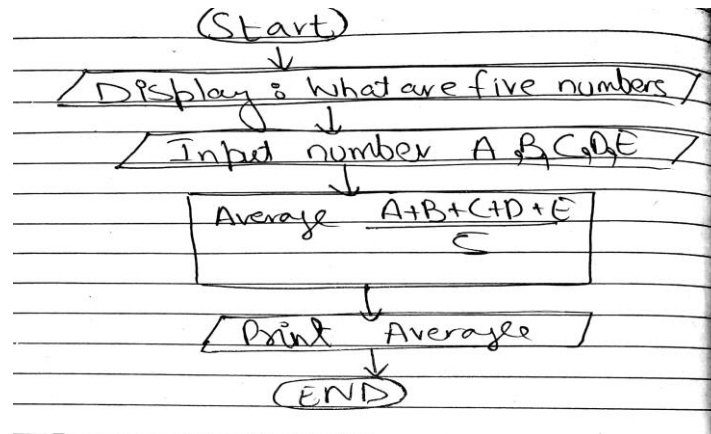 Start
Display : What are five numbers
Input number A,B,C,D,E
Average A+B+C+D+E
5
Print Average
END